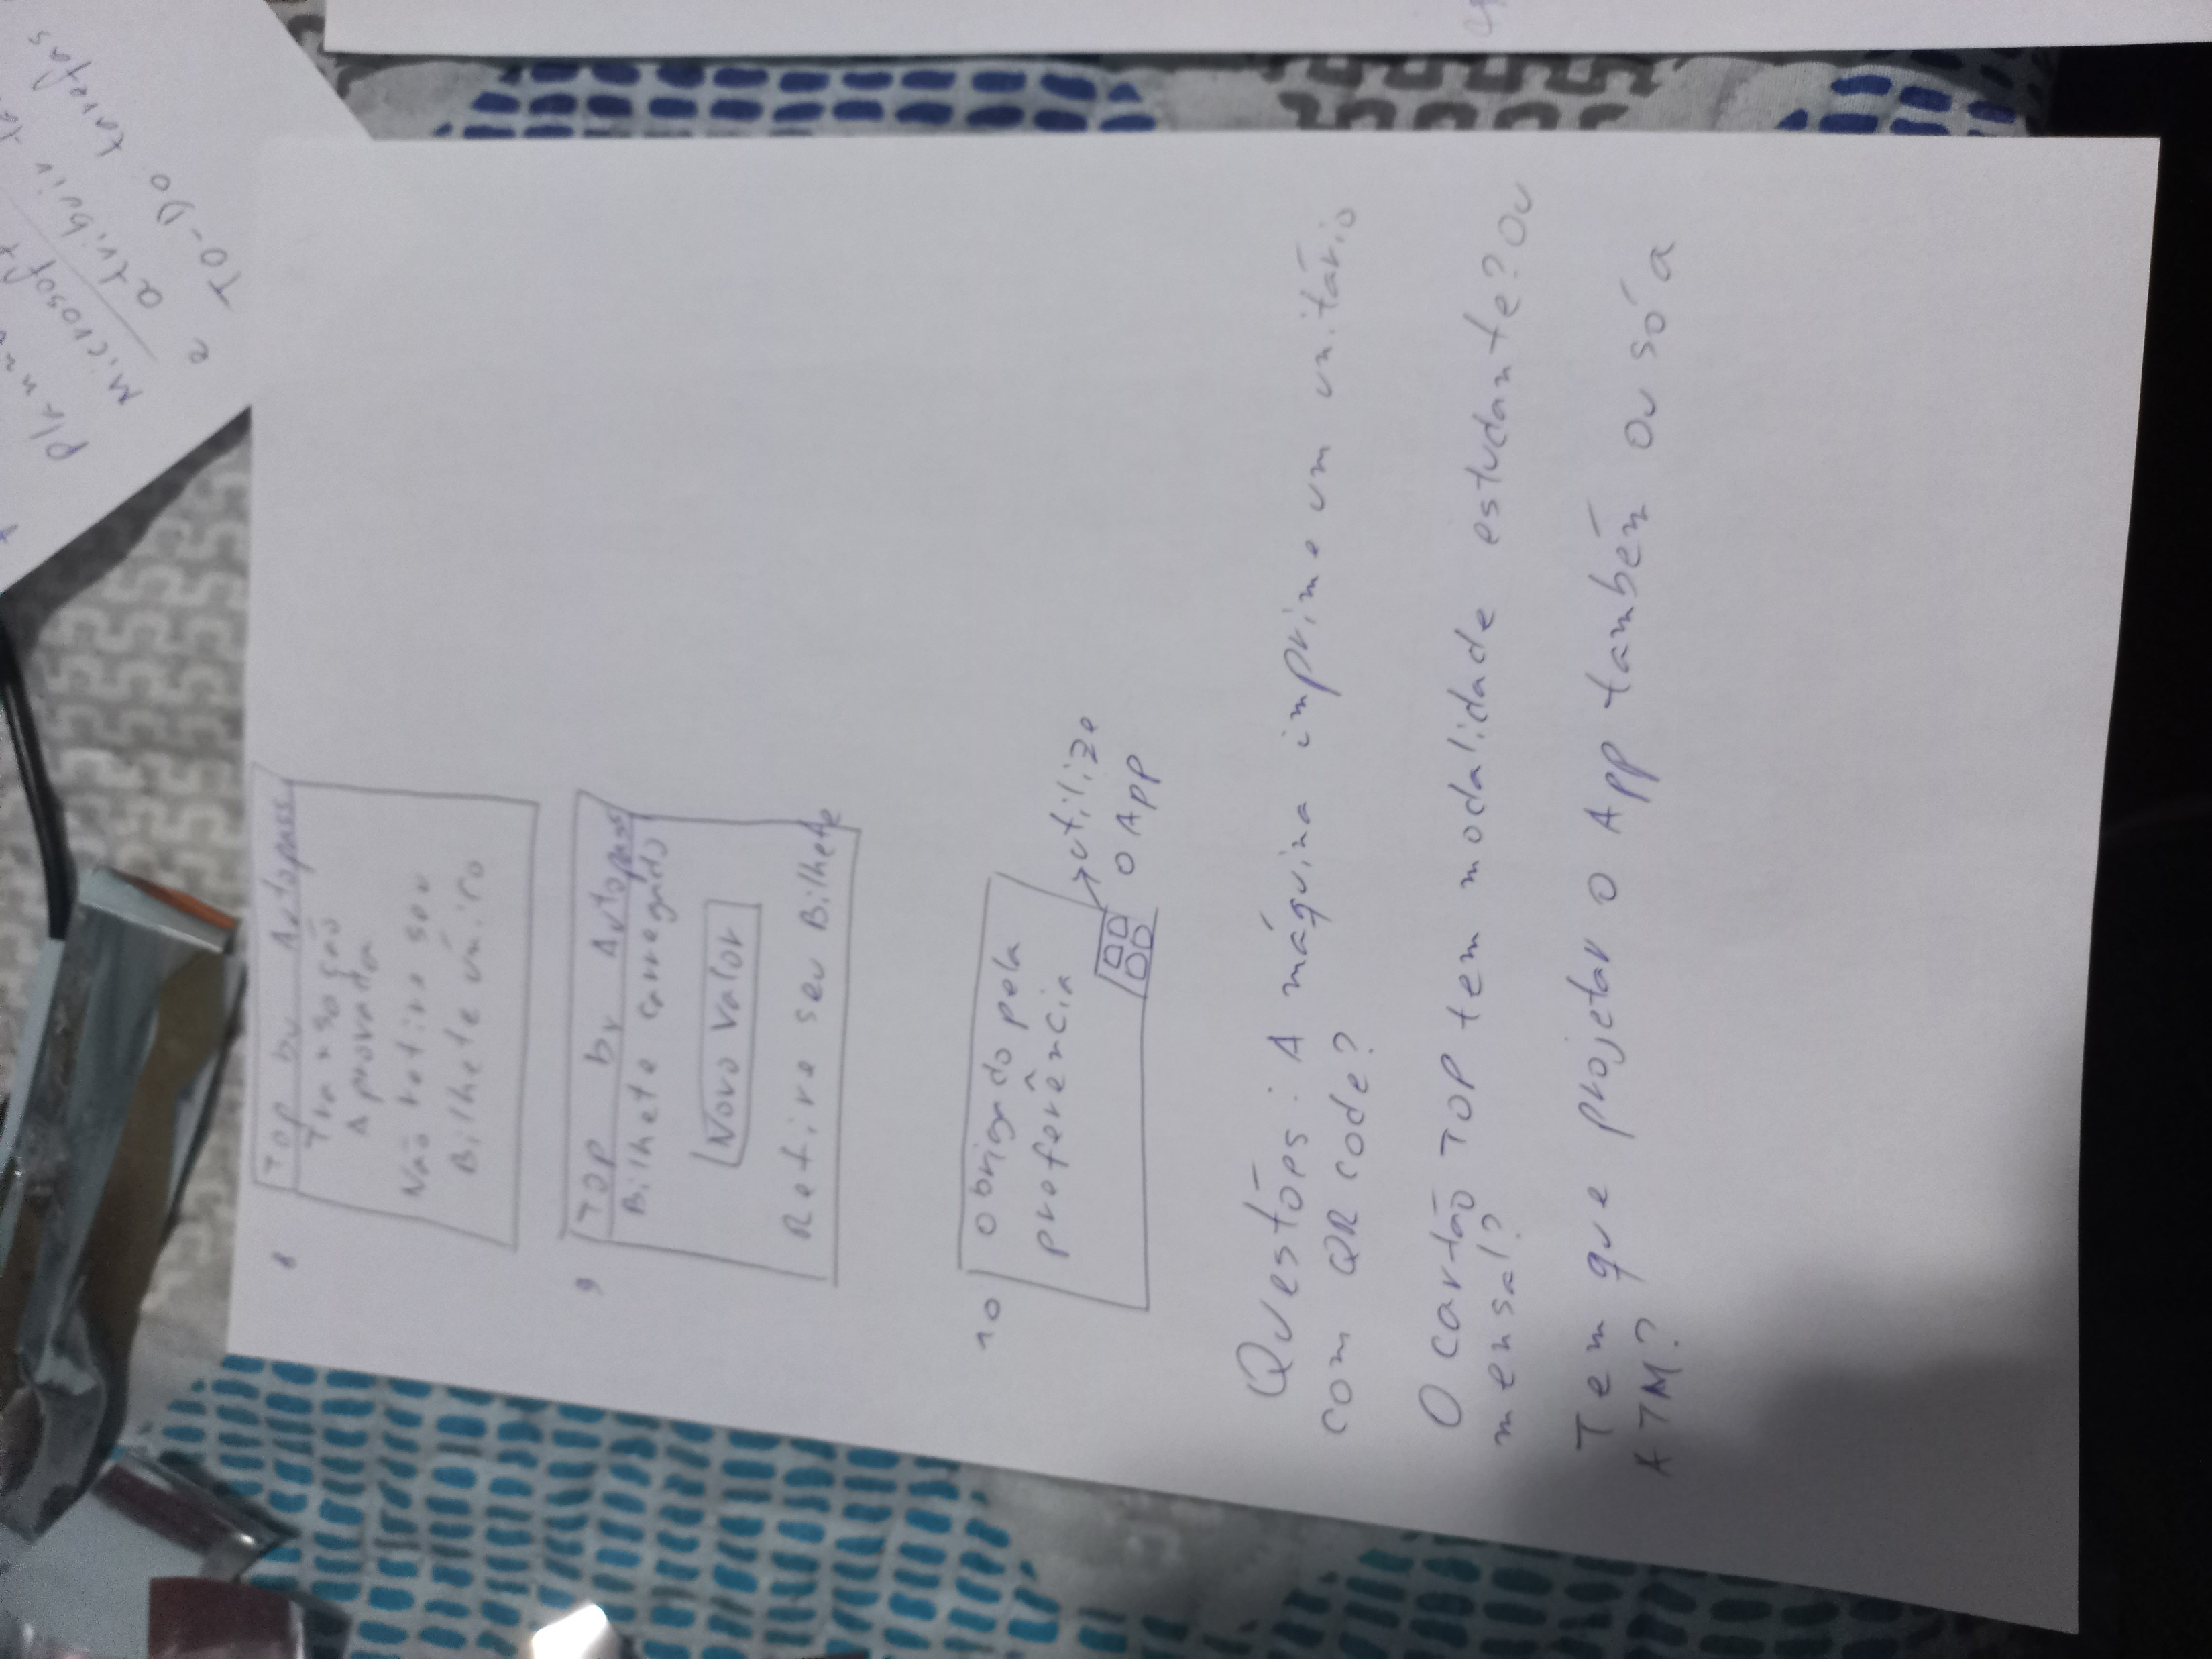 8
TOP by Autopass
Transação
Aprovada
Não retire seu
Bilhete único
9
TOP by Autopass
Bilhete carregado
Novo Valor
Retire seu Bilhete
10
Obrigado pela
preferência
utilize
O APP
Questões: A máquina imprime um unitário
com QR code?
O cartão TOP tem modalidade estudante? Ou
mensal?
Tem que projetar o App também ou só a
ATM?
Microsoft
atribuir
e TO-DO tarefas